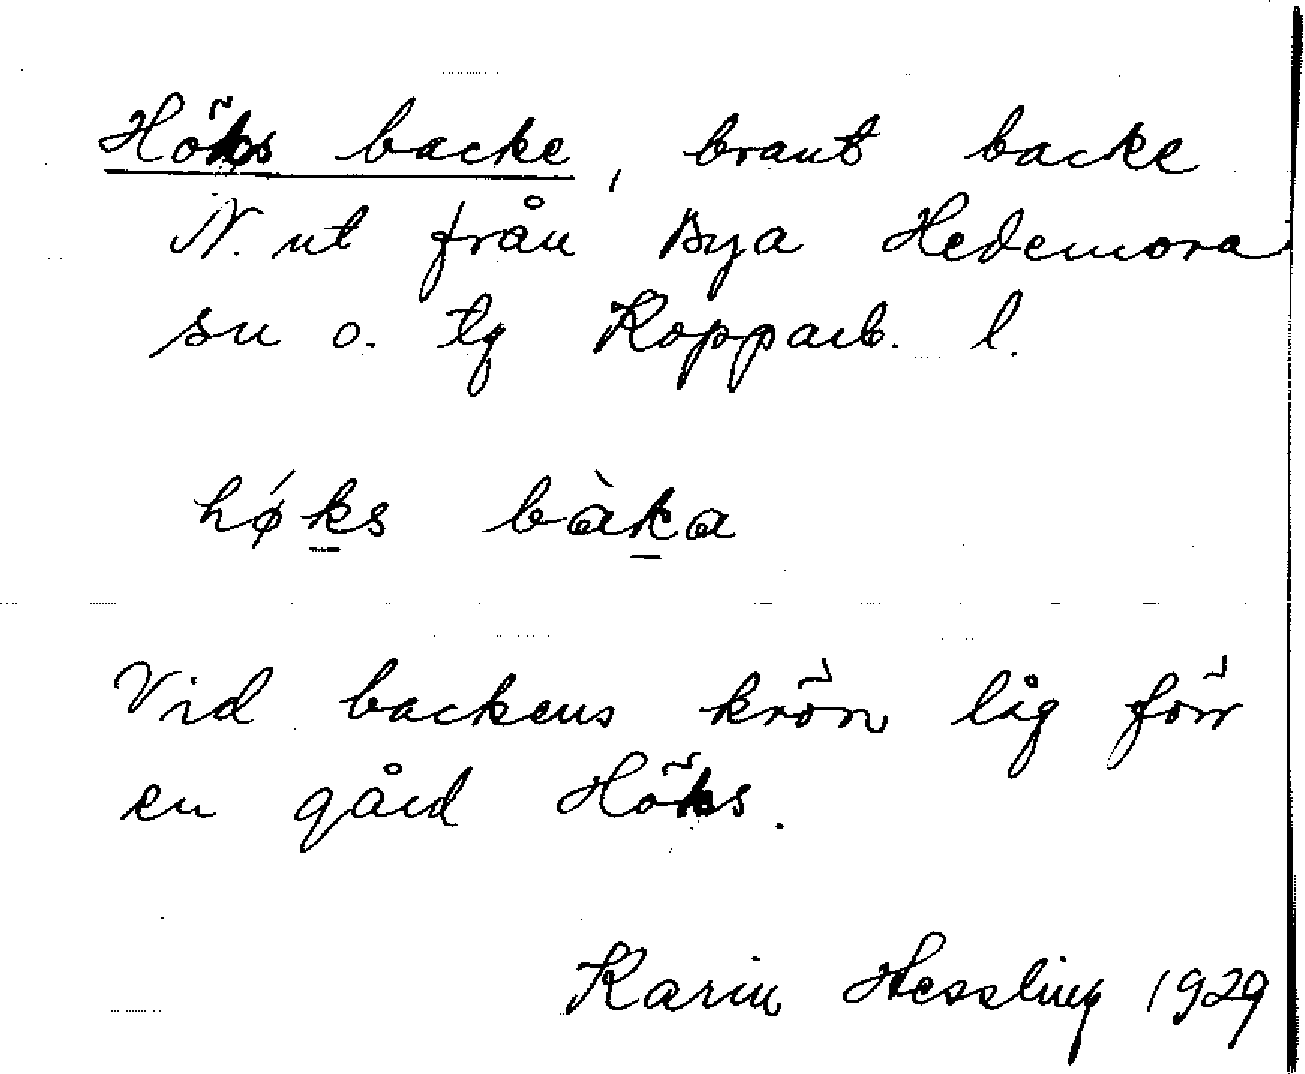 Höks backe, brant backe
N. ut från Bya Hedemora
sn o. tg Kopparb. l.
hǿks bàka
Vid backens krön låg förr
en gård Höks.
Karin Hessling 1929